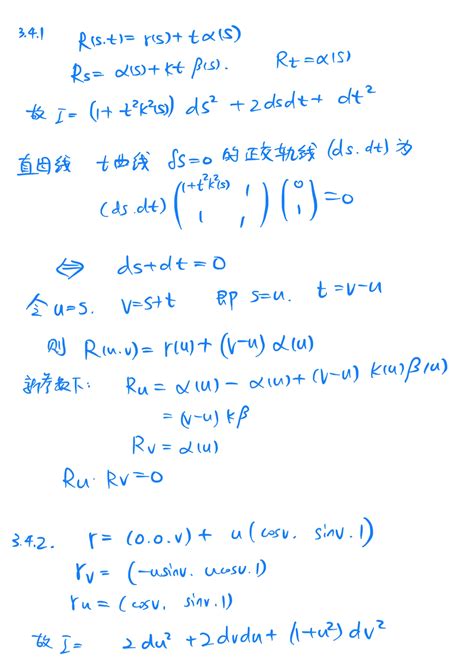 3.4.1 R(s.t)= r(s)+tα(s)
Rs= α(s)+kt β(s). Rt=α(s)
故 I= (1+t²k²(s)) ds² +2dsdt+ dt²
直母线 t曲线 δs=0 的正交轨线 (ds.dt)为
(ds.dt) ( 1+t²k²(s) 1 ) ( 0 ) =0
( 1 1 ) ( 1 )
⇔ ds+dt=0
令 u=s. v=s+t 即 s=u. t=v-u
则 R(u.v)= r(u)+ (v-u) α(u)
新参数下: Ru= α(u) - α(u)+ (v-u) k(u)β(u)
= (v-u) kβ
Rv= α(u)
Ru· Rv=0
3.4.2. r= (0.0.v)+ u(cosv. sinv.1)
rv= (-usinv. ucosv.1)
ru=(cosv. sinv.1)
故 I= 2du² +2dvdu+ (1+u²)dv²